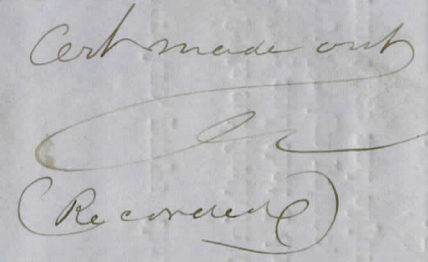 Cert made out
(Recorded)